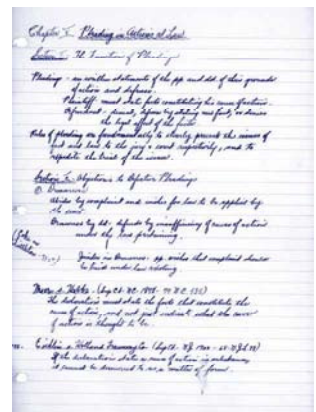 Chapter I. Pleading in Actions at Law
Section I. The Function of Pleading
Pleading - are written statements of the pp and dd. of their grounds
of action and defense.
Plaintiff - must state facts constituting his cause of action.
Defendant - denies, defense by stating new facts, or denies
the legal effect of the facts.
Rules of pleading are fundamentally to clearly present the issues of
fact and law to the jury & court respectively, and to
expedite the trial of the issues.
Section 2. Objections to Defective Pleadings
Demurrer
Abides by complaint and wishes for law to be applied by
the court.
Demurrer by dd. - defends by insufficiency of causes of action
under the law pertaining.
Joinder in Demurrer - pp. wishes that complaint should
be tried under law
Moore v. Hobbs - (Sup Ct. NC. 1878 - 79 N.C. 535)
The declaration must state the facts that constitute the
cause of action, and not just indicate what the cause
of action is thought to be.
v. Holland
If the declaration states a cause of action in
it cannot be demurred to as a matter of form.